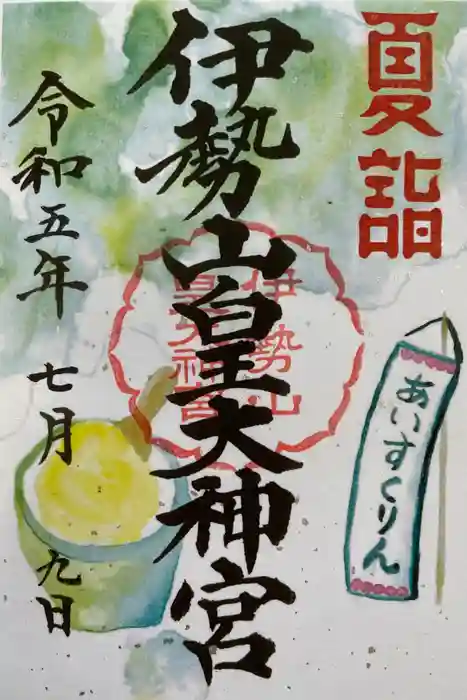 夏詣
伊勢山皇大神宮
伊勢山
皇大神宮
令和五年 七月 九日
あいすくりん